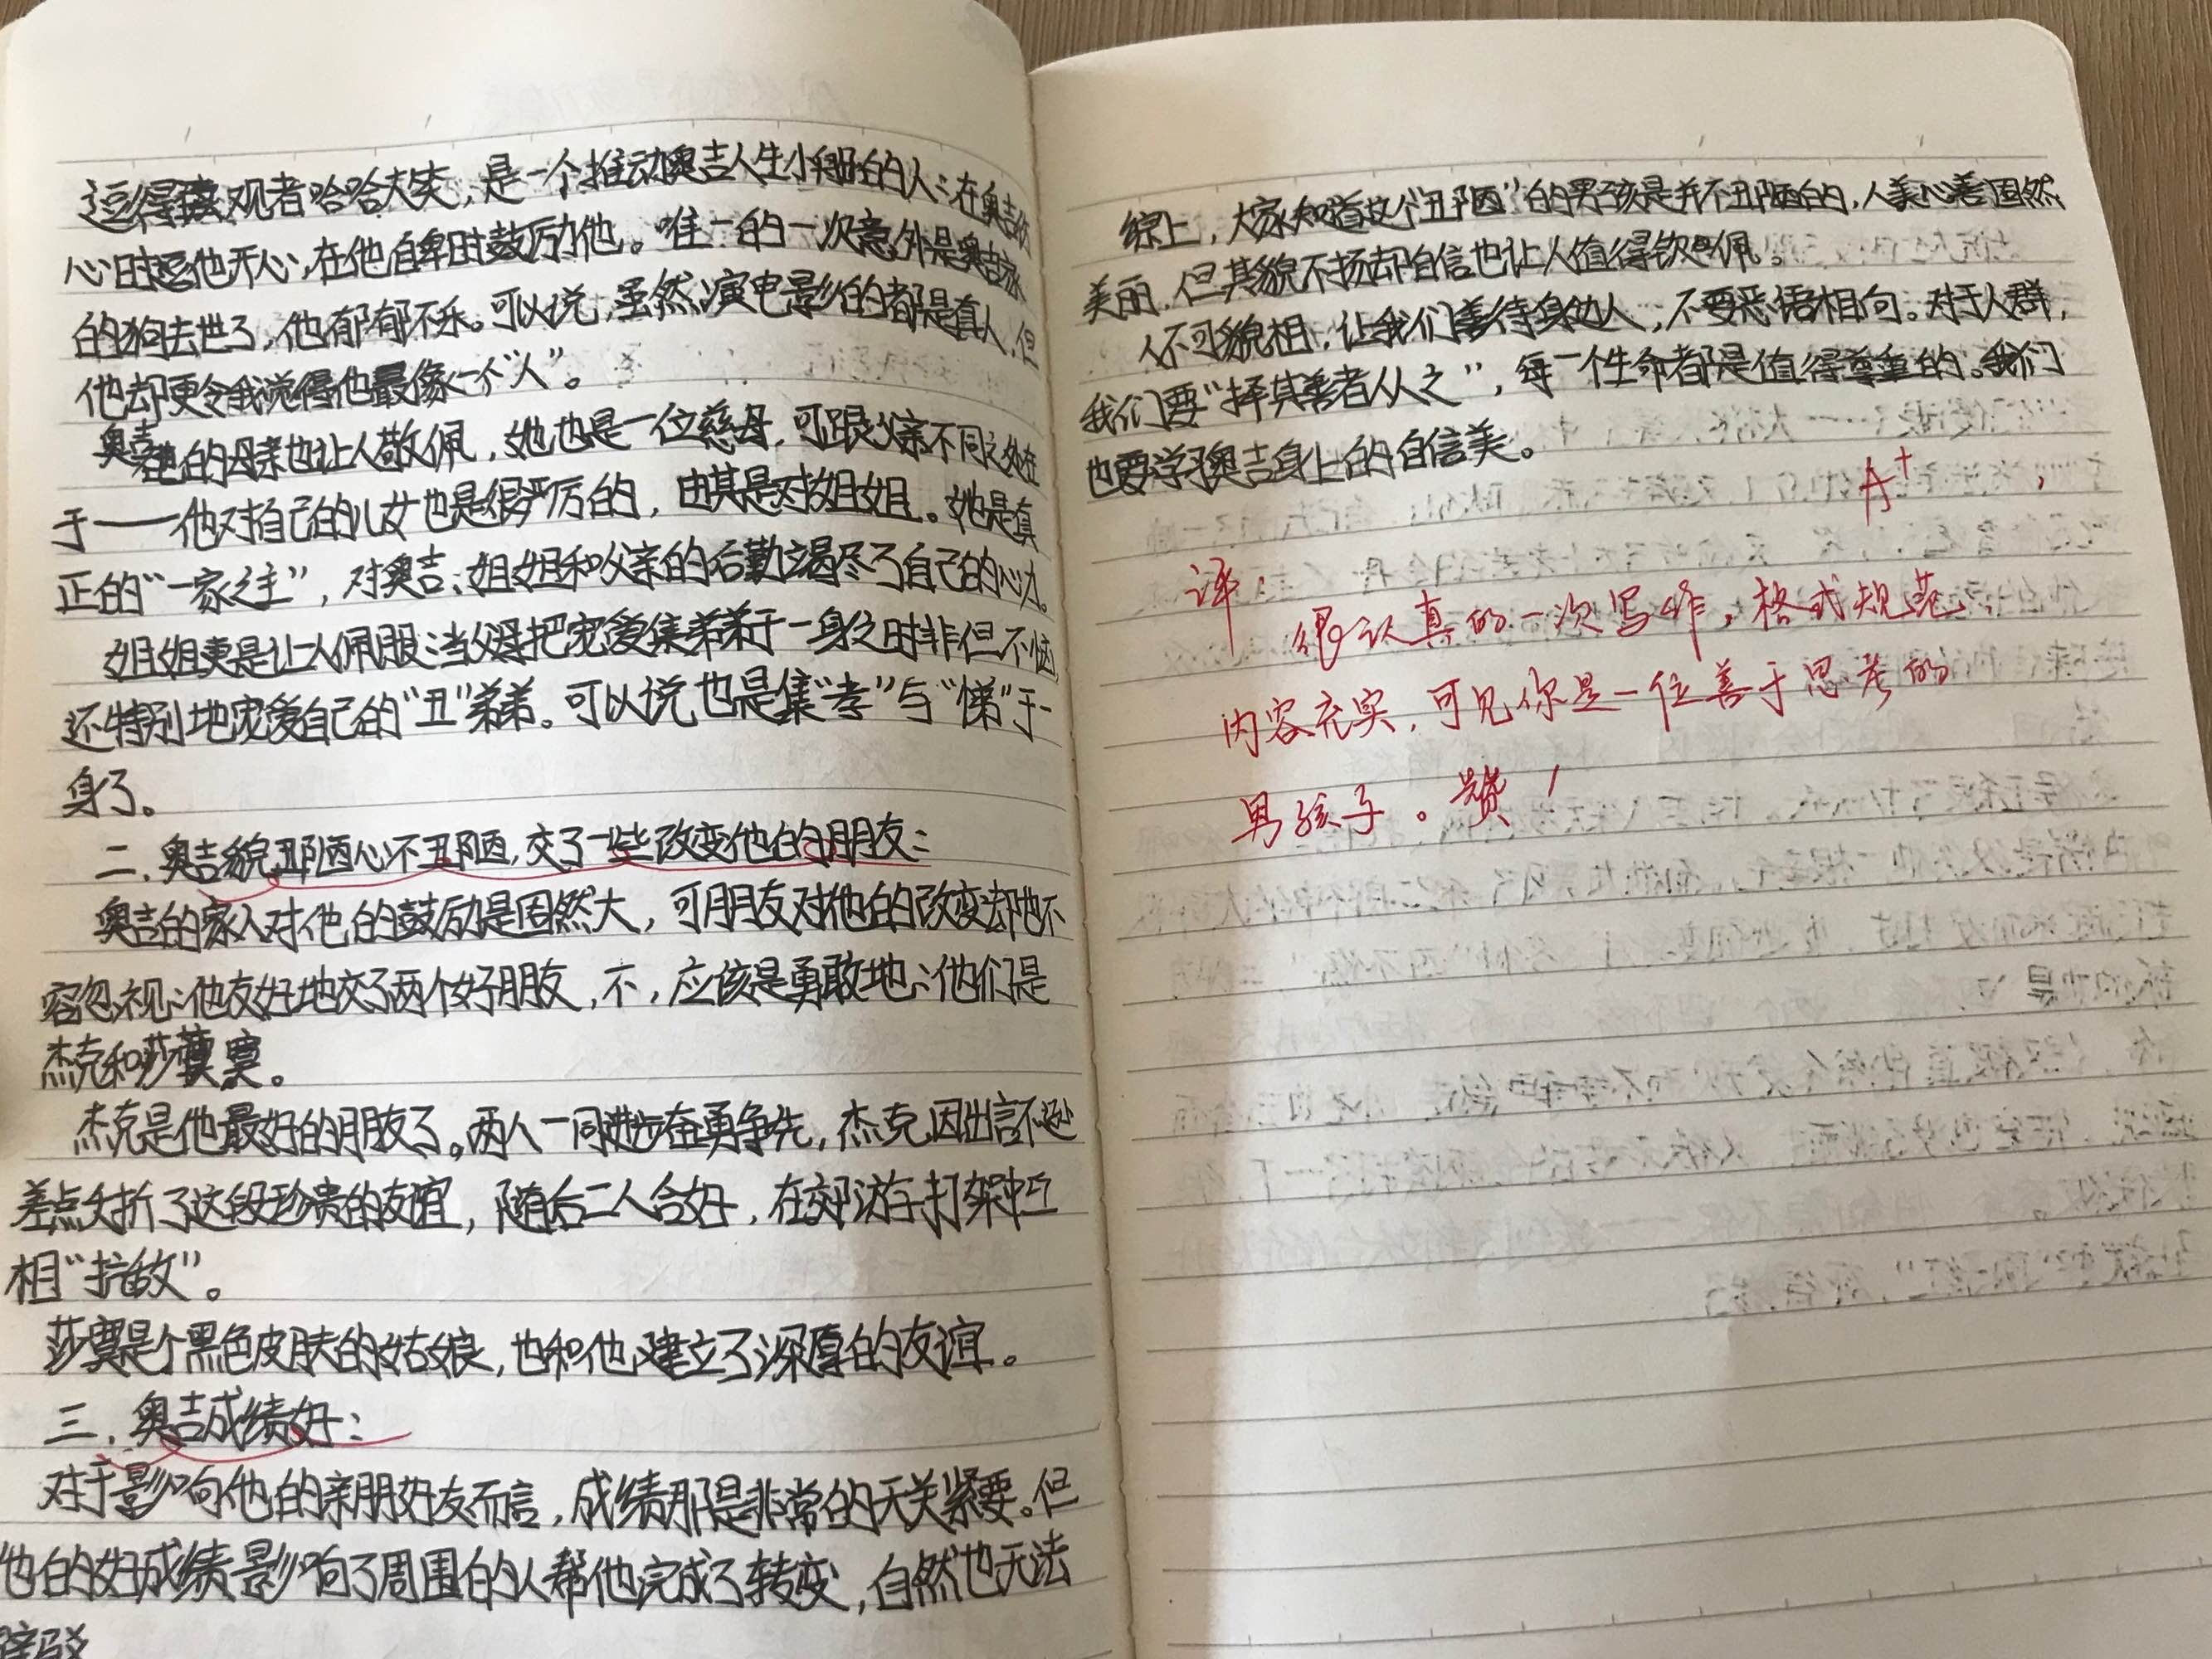 逗得观者哈哈大笑,是一个推动奥吉人生小船的人:在奥吉
心时逗他开心,在他自卑时鼓励他。唯一的一次意外是奥吉家
的狗去世了,他郁郁不乐。可以说,虽然演电影的都是真人,但
他却更令我觉得他最像一个“人”。
奥吉的母亲也让人敬佩,她也是一位慈母,可跟父亲不同之处在
于——他对自己的儿女也是很严厉的,尤其是对姐姐。她是真
正的“一家之主”,对奥吉、姐姐和父亲的后勤竭尽了自己的心力。
姐姐更是让人佩服:当父母把宠爱集弟弟于一身之时非但不恼
还特别地宠爱自己的“丑”弟弟。可以说也是集“孝”与“悌”于一
身了。
二.奥吉貌丑陋心不丑陋,交了一些改变他的朋友:
奥吉的家人对他的鼓励是固然大,可朋友对他的改变却也不
容忽视:他友好地交了两个好朋友,不,应该是勇敢地:他们是
杰克和莎蔓。
杰克是他最好的朋友了。两人一同进步奋勇争先,杰克因出言不逊
差点夭折了这段珍贵的友谊,随后二人合好,在郊游打架中互
相“抗敌”。
莎蔓是个黑色皮肤的姑娘,也和他建立了深厚的友谊。
三.奥吉成绩好:
对于影响他的亲朋好友而言,成绩那是非常的无关紧要。但
他的好成绩影响了周围的人帮他完成了转变,自然也无法
辩驳
综上,大家知道这个“丑陋”的男孩是并不丑陋的,人美心善固然
美丽,但其貌不扬却自信也让人值得钦佩。
人不可貌相,让我们善待身边人,不要恶语相向。对于人群,
我们要“择其善者从之”,每一个生命都是值得尊重的。我们
也要学习奥吉身上的自信美。
A+
评:
很认真的一次写作,格式规范,
内容充实,可见你是一位善于思考的
男孩子。赞!